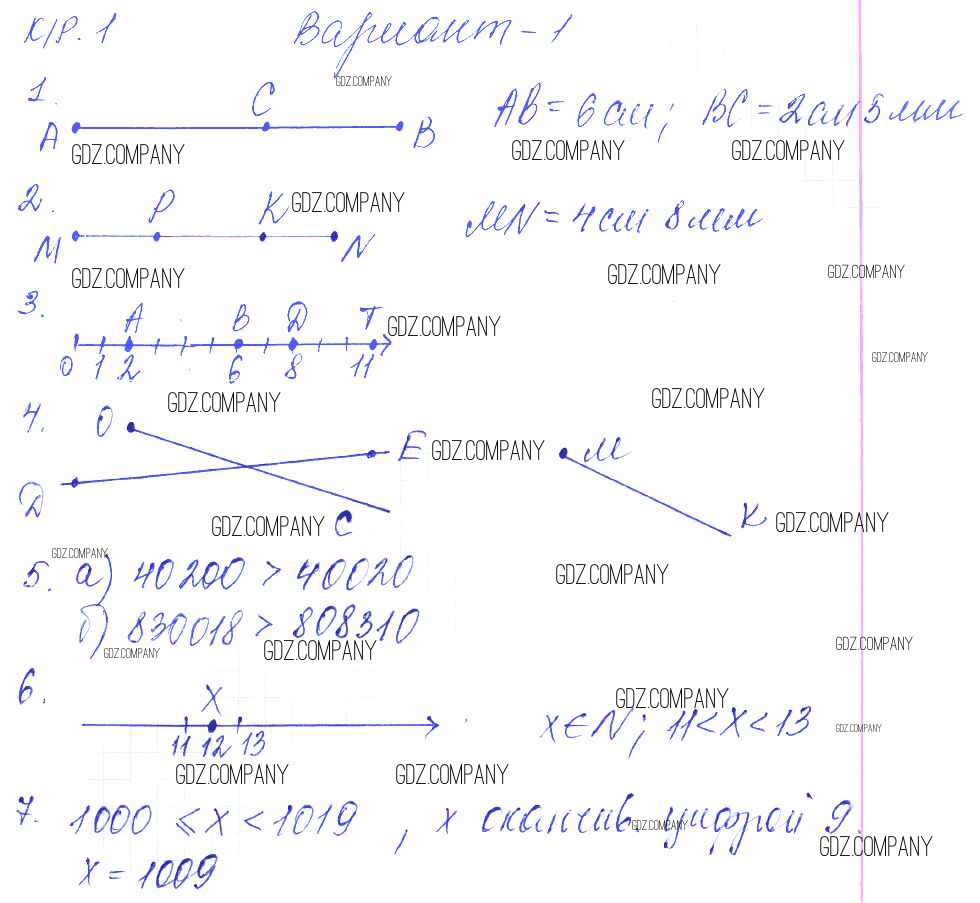 К/Р. 1 Вариант - 1
GDZ.COMPANY
1. A C B AB = 6 см; BC = 2 см 5 мм
GDZ.COMPANY GDZ.COMPANY GDZ.COMPANY
2. M P K N MN = 4 см 8 мм
GDZ.COMPANY
GDZ.COMPANY GDZ.COMPANY GDZ.COMPANY
3. A B D T
GDZ.COMPANY
0 1 2 6 8 11
GDZ.COMPANY
GDZ.COMPANY GDZ.COMPANY
4. O E M
GDZ.COMPANY
D C K
GDZ.COMPANY GDZ.COMPANY
GDZ.COMPANY
5. а) 40200 > 40020
GDZ.COMPANY
б) 830018 > 808310
GDZ.COMPANY GDZ.COMPANY GDZ.COMPANY
6. X
GDZ.COMPANY
11 12 13 x ∈ N; 11 < X < 13
GDZ.COMPANY
GDZ.COMPANY GDZ.COMPANY
7. 1000 ⩽ X < 1019, x сканчив. цифрой 9.
GDZ.COMPANY
GDZ.COMPANY
X = 1009